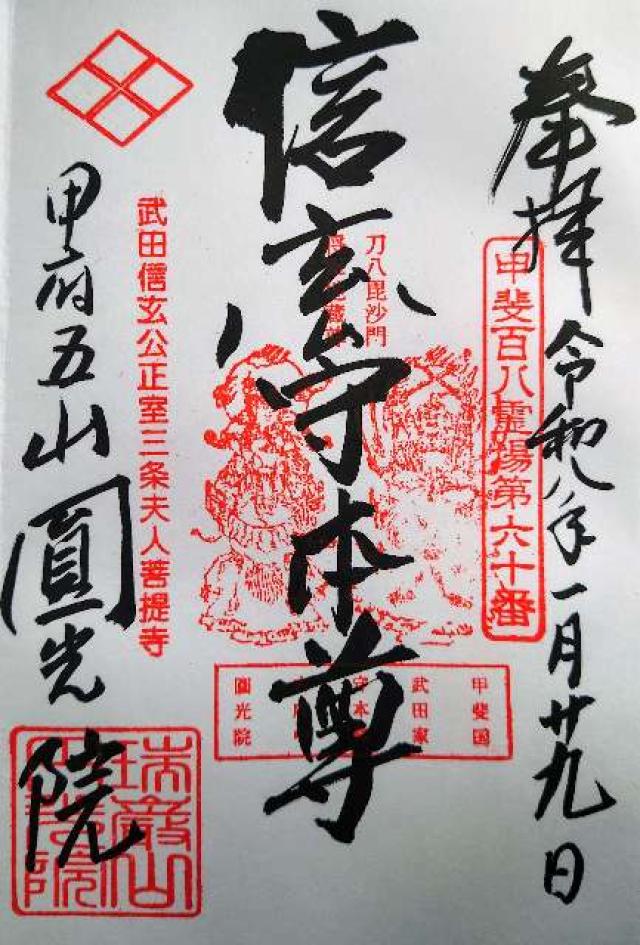 奉拝
令和八年一月廿九日
甲斐百八霊場第六十番
信玄守本尊
刀八毘沙門
甲斐国
武田家
守本
圓光院
武田信玄公正室三条夫人菩提寺
甲府五山圓光院
瑞巌山
圓光院